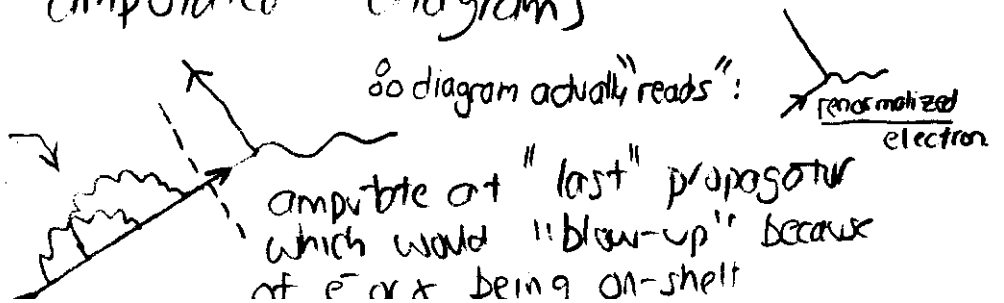 amputated diagrams
∴ diagram actually "reads":
renormalized
electron
amputate at "last" propagator
which would "blow-up" because
of e⁻ or γ being on-shell